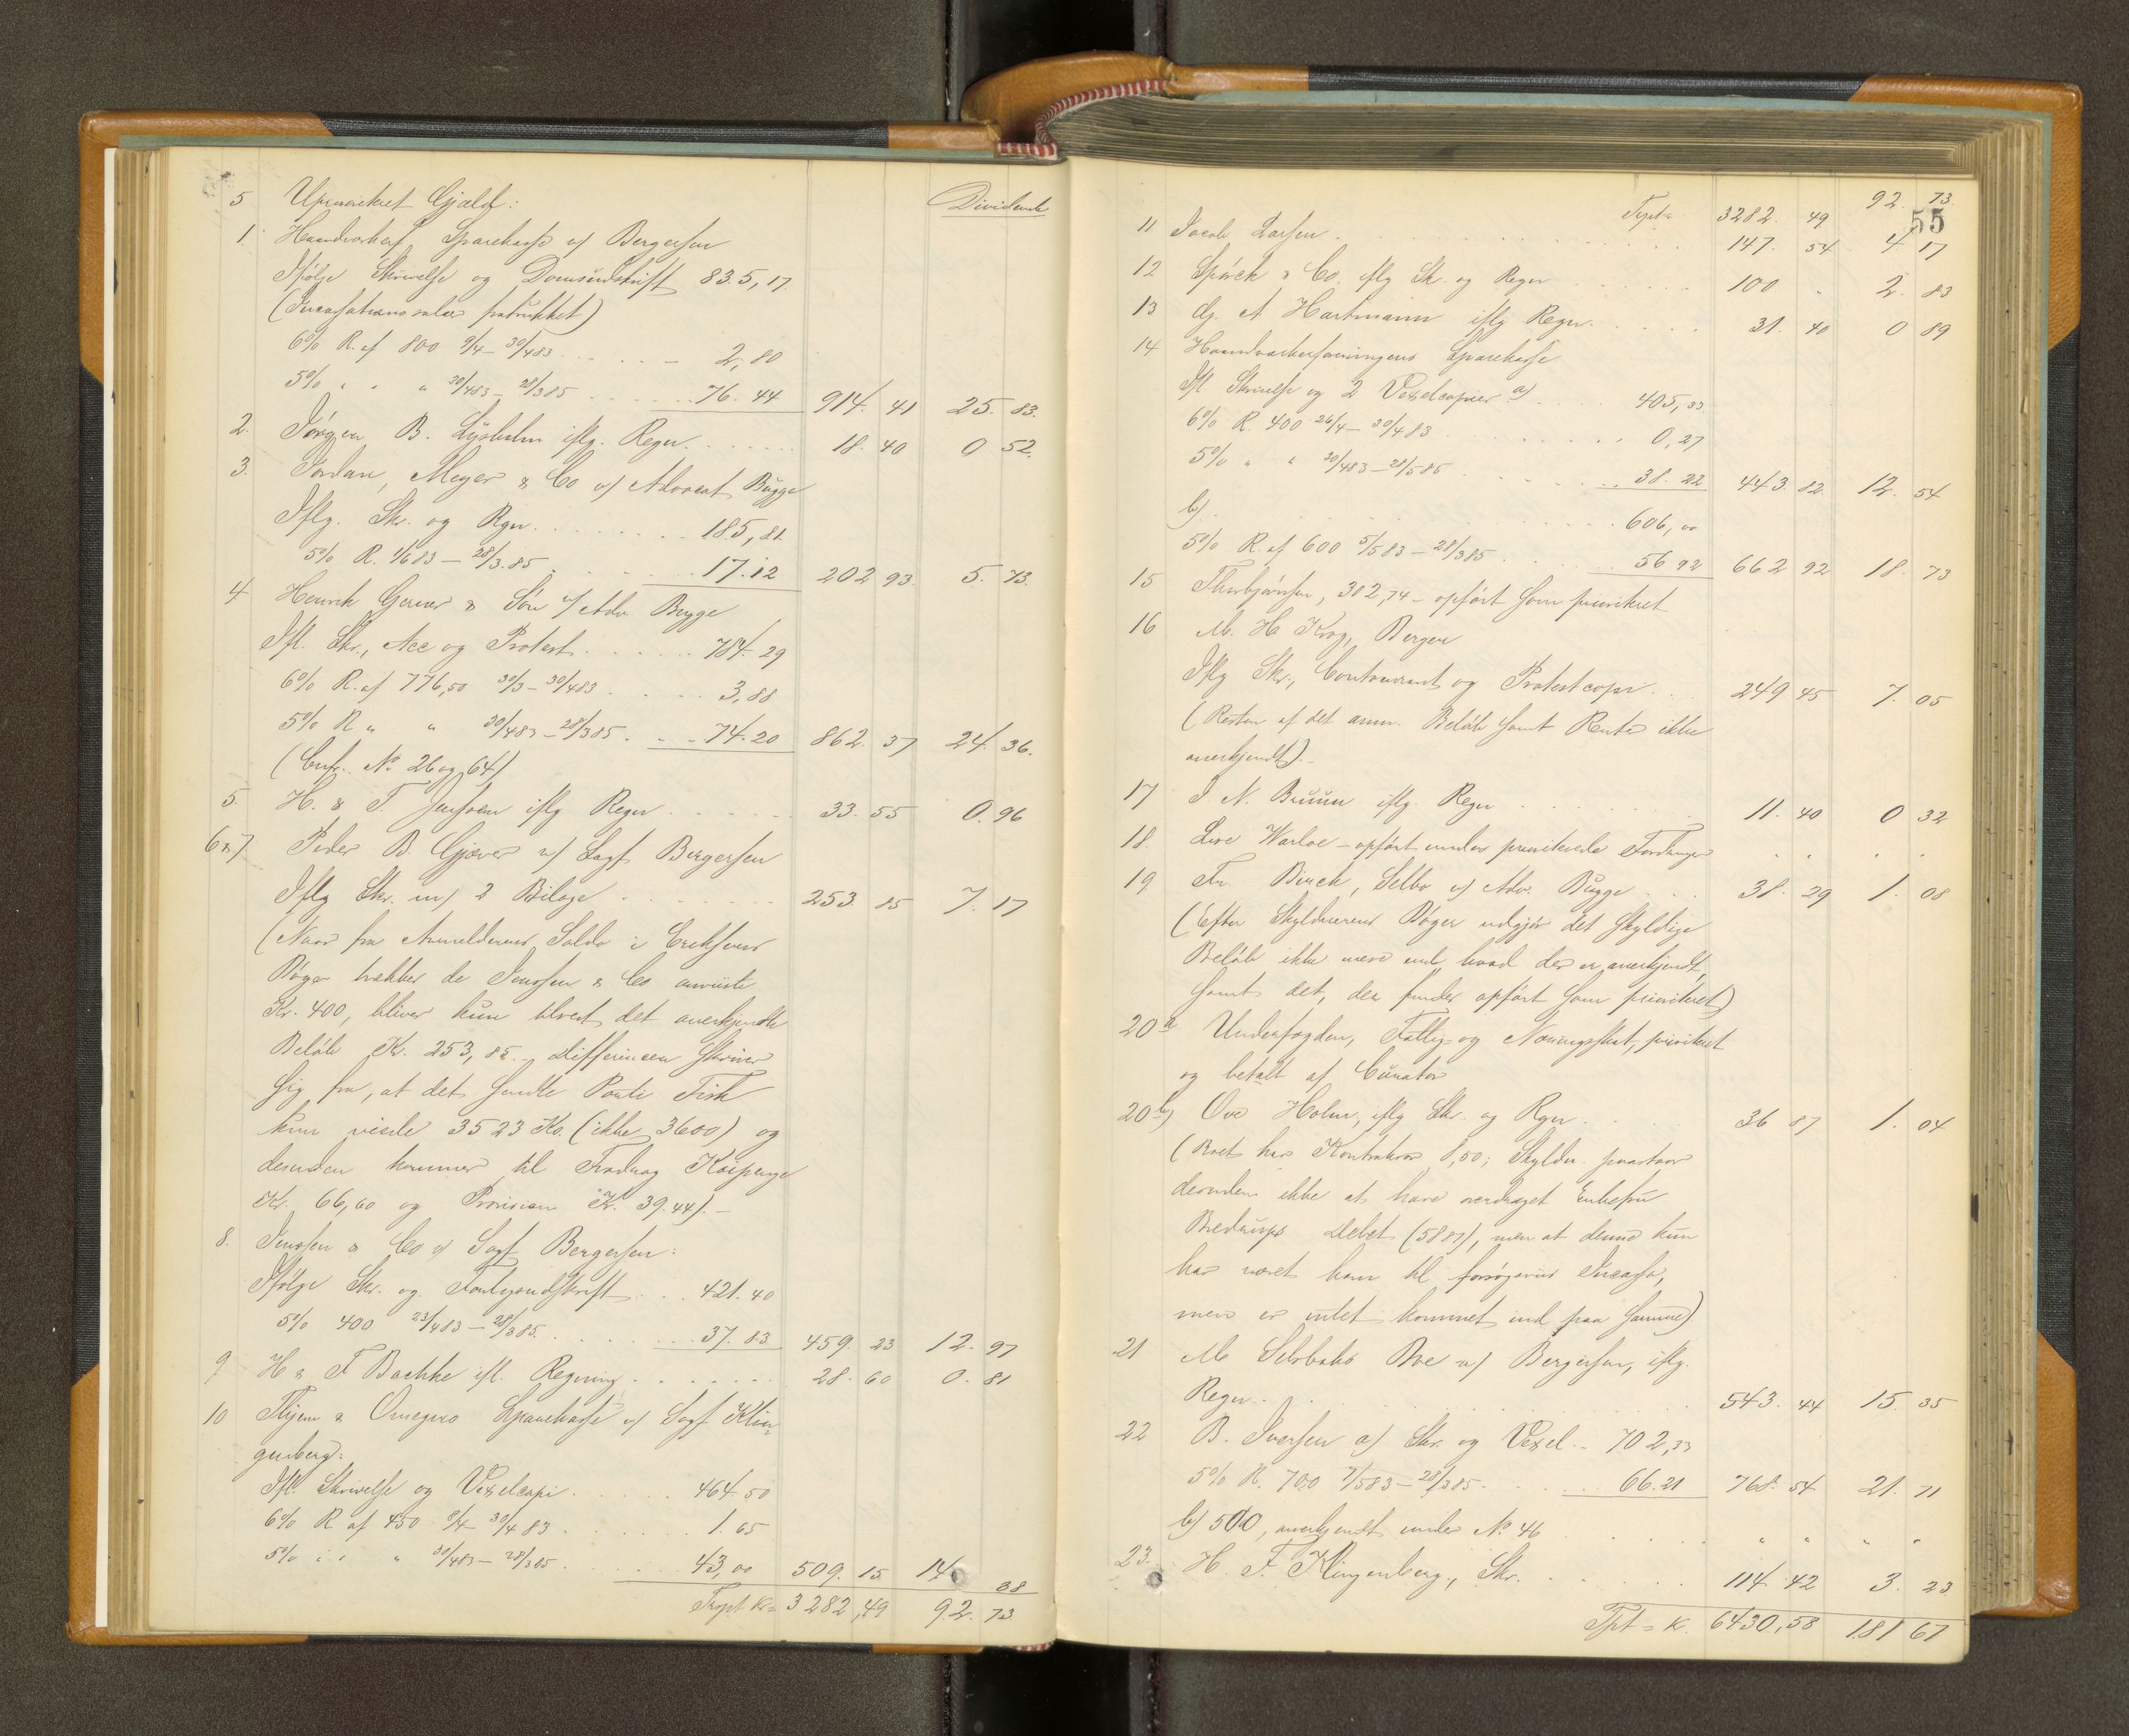 5 Uprioritert Gjæld: Dividende
1. Haandværkerf. Sparekasse v/ Bergersen
Ifølge Skrivelse og Domsudskrift 835,17.
(Incassationssalær fratrukket)
6% R. af 800 9/4 - 30/4 83 . . . . - 2,80
5% " " " 30/4 83 - 28/3 85 . . . . 76.44 914. 41 25. 83.
2. Jørgen B. Lysholm iflg. Regn. . . . . 18. 40 0 52.
3. Jordan, Meyer & Co v/ Advocat Bugge
Iflg. Skr. og Rgn. . . . . . . . 185,81
5% R. 1/6 83 - 28/3.85 . . . . 17.12 202 93. 5. 73.
4 Henrik Gerner & Søn v/ Adv. Bugge
Ifl. Skr., Acc og Protest . . . . . 784. 29
6% R. af 776,50 30/3 - 30/4 83 . . . . 3,88
5% R " " 30/4 83 - 28/3 85 . . . 74.20 862. 37 24. 36.
(Cnfr. No 26 og 64)
5. H. & F. Jenssen iflg Regn . . . . . 33. 55 0. 96
6&7 Peder B. Gjæver v/ Sagf. Bergersen
Iflg Skr. m/ 2 Bilage . . . . . . 253. 85 7. 17
(Naar fra Anmelderens Saldo i Erichsens
Bøger trækkes de Jenssen & Co anviste
Kr. 400, bliver kun tilrest det anerkjendte
Beløb Kr. 253,85. Differencen skriver
sig fra, at det sendte Parti Fisk
kun veiede 3523 Ko. (ikke 3600) og
desuden kommer til Fradrag Kaipenge
Kr. 66,60 og Provision Kr. 39.44). -
8. Jenssen & Co v/ Sagf. Bergersen:
Ifølge Skr. og Forligsudskrift . . . 421. 40
5% 400 23/4 83 - 28/3 85. . . . . . 37. 83 459. 23 12. 97
9 H & F Bachke ifl. Regning . . . . . . 28. 60 0. 81
10 Thjem & Omegns Sparekasse v/ Sagf. Klin-
genberg:
Ifl. Skrivelse og Vexelcopi . . . . . 464. 50
6% R af 450 8/4 - 30/4 83 . . . . . . 1. 65
5% " " " 30/4 83 - 28/3 85 . . . . 43,00 509. 15. 14. 38
Trspt Kr = 3282,49 92. 73
Tspt = 3282. 49 92. 73
55
11 Jacob Larsen . . . . . . . . . 147. 54 4. 17
12 Spörck & Co. iflg Skr. og Regn . . . . . . 100 " 2. 83
13 Aj. A Hartmann iflg Regn. . . . . . 31. 40 0 89
14 Haandværkerforeningens Sparekasse
Ifl Skrivelse og 2 Vexelcopier a) . . . . 405,33
6% R. 400 26/4 - 30/4 83 . . . . . . 0,27
5% " " 30/4 83 - 28/3 85 . . . . . . 38. 22 443. 82. 12. 54
b) . . . . . . . . . . . 606,00
5% R. af 600 5/5 83 - 28/3 85 . . . 56 92 662 92 18. 73
15 Thorbjørnsen, 302,74 - opført som prioritert
16 M. H Krog, Bergen
Iflg Skr., Contocurant og Protestcopi . . . 249 45 7. 05
(Resten af det anm. Beløb samt Rente ikke
anerkjendt). -
17 J N. Bruun iflg. Regn . . . . . . . 11. 40 0 32
18. Lese Warloe - opført under prioriterede Fordringer " " " "
19 Fr. Birch, Selbo v/ Adv. Bugge . . . 38. 29 1. 08
(Efter Skyldnerens Bøger udgjør det skyldige
Beløb ikke mere end hvad der er anerkjendt,
samt det, der findes opført som prioriteret)
20 a Underfogden, Fattig- og Næringsskat, prioriteret
og betalt af Curator
20 b) Ove Holm, iflg Skr. og Rgn . . . . 36 87 1. 04
(Boet har Kontrakrav 8,50; Skyldn. paastaar
desuden ikke at have overdraget Enkefru
Bredrups Debet (5887), men at denne kun
har været ham til forsøgsvis Incasso,
men er intet kommet ind paa samme)
21 M Selsbaks Bve v/ Bergersen, iflg.
Regn . . . . . . . . . . 543. 44 15. 35
22 B. Iversen a) Skr. og Vexel. - 702,33
5% R. 700 7/5 83 - 28/3 85 . . . . . . 66. 21 768. 54 21. 71
b) 500, anerkjendt under No 46 . . . . " " " "
23. H. F. Klingenberg, Skr. . . . . . . 114. 42 3. 23
Tpt = Kr. 6430,58 181 67